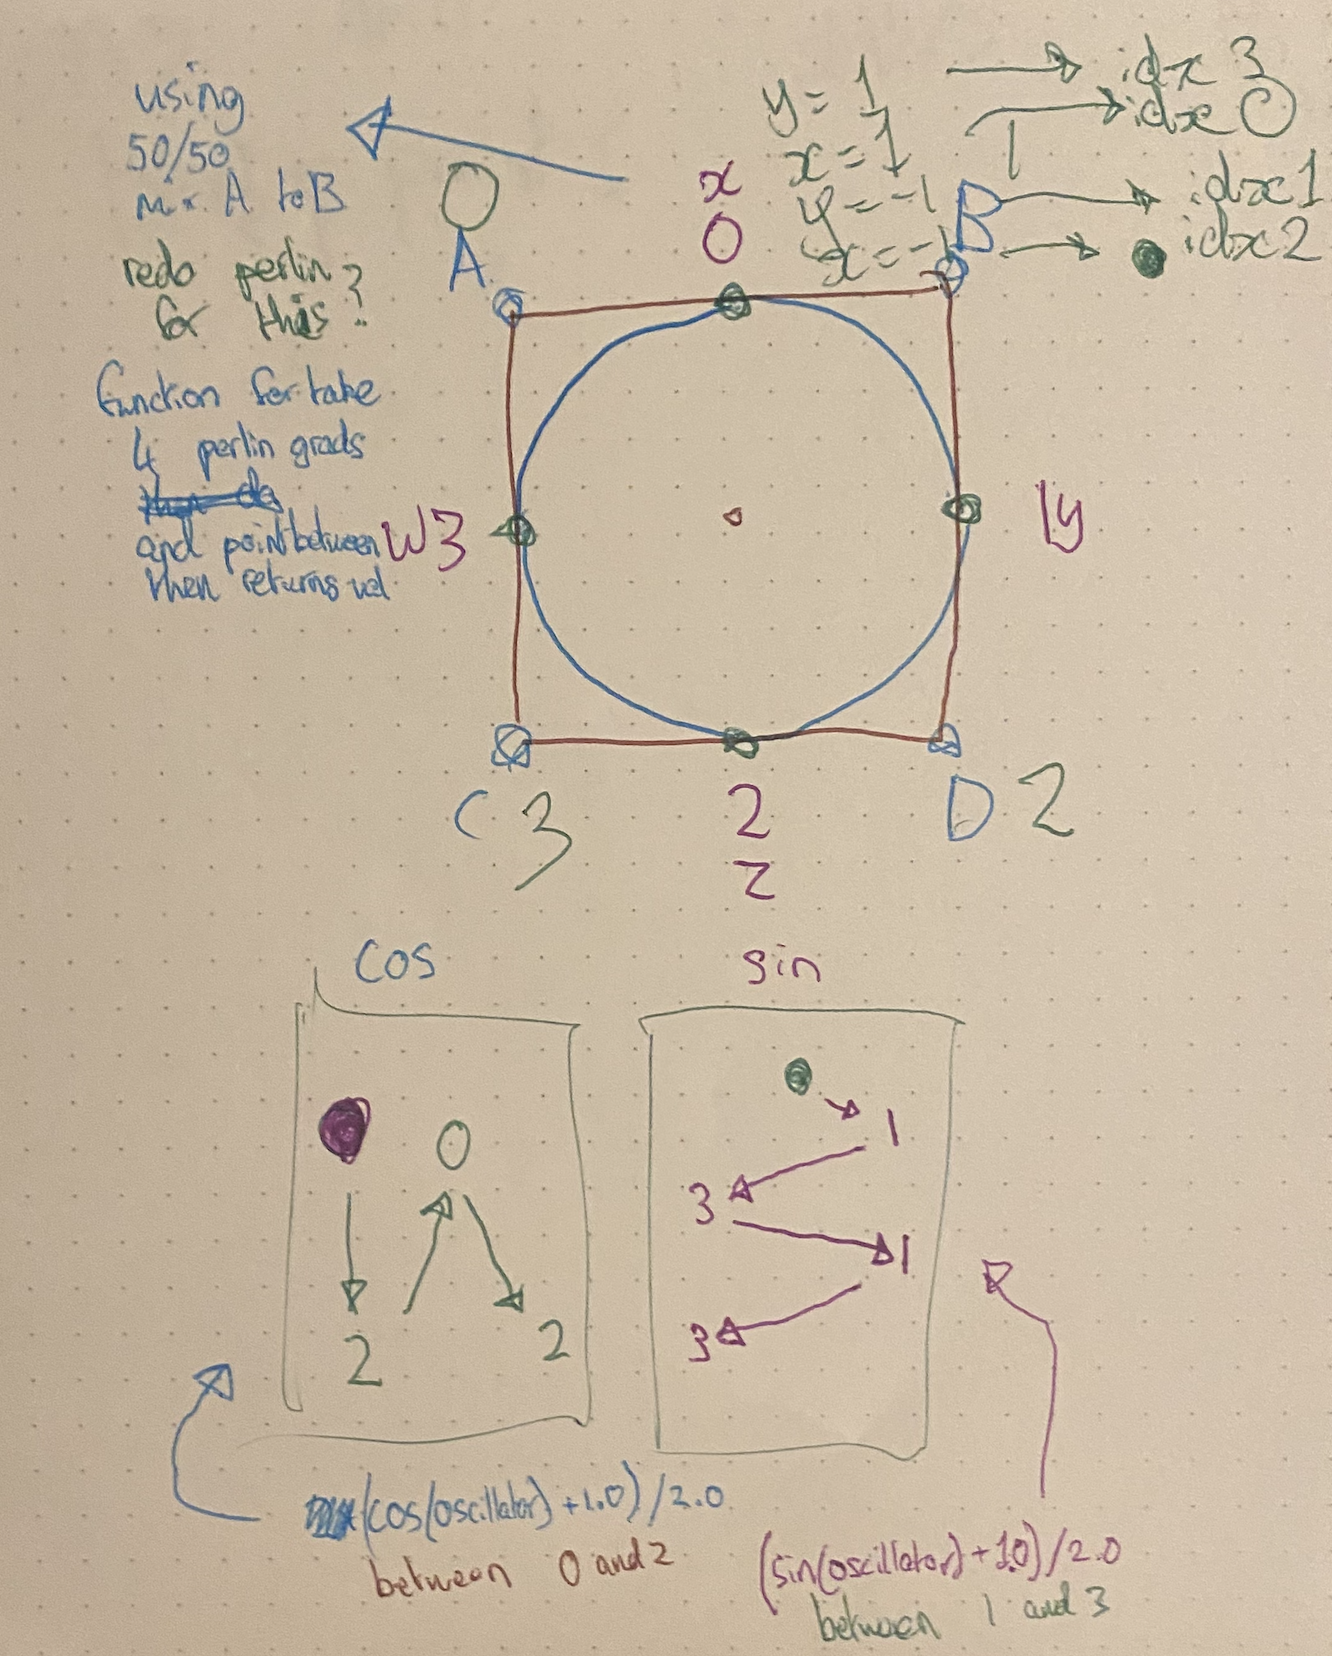 using
50/50
mix A to B
redo perlin
for this?
function for take
4 perlin grads
and point between
then returns val
y = 1 idx 3
x = 1 idx 0
y = -1 idx 1
x = -1 idx 2
0
A
x
0
1
B
W3
1y
C 3
2
z
D 2
cos
sin
0
2
2
1
3
1
3
(cos(oscillator) + 1.0) / 2.0
between 0 and 2
(sin(oscillator) + 1.0) / 2.0
between 1 and 3